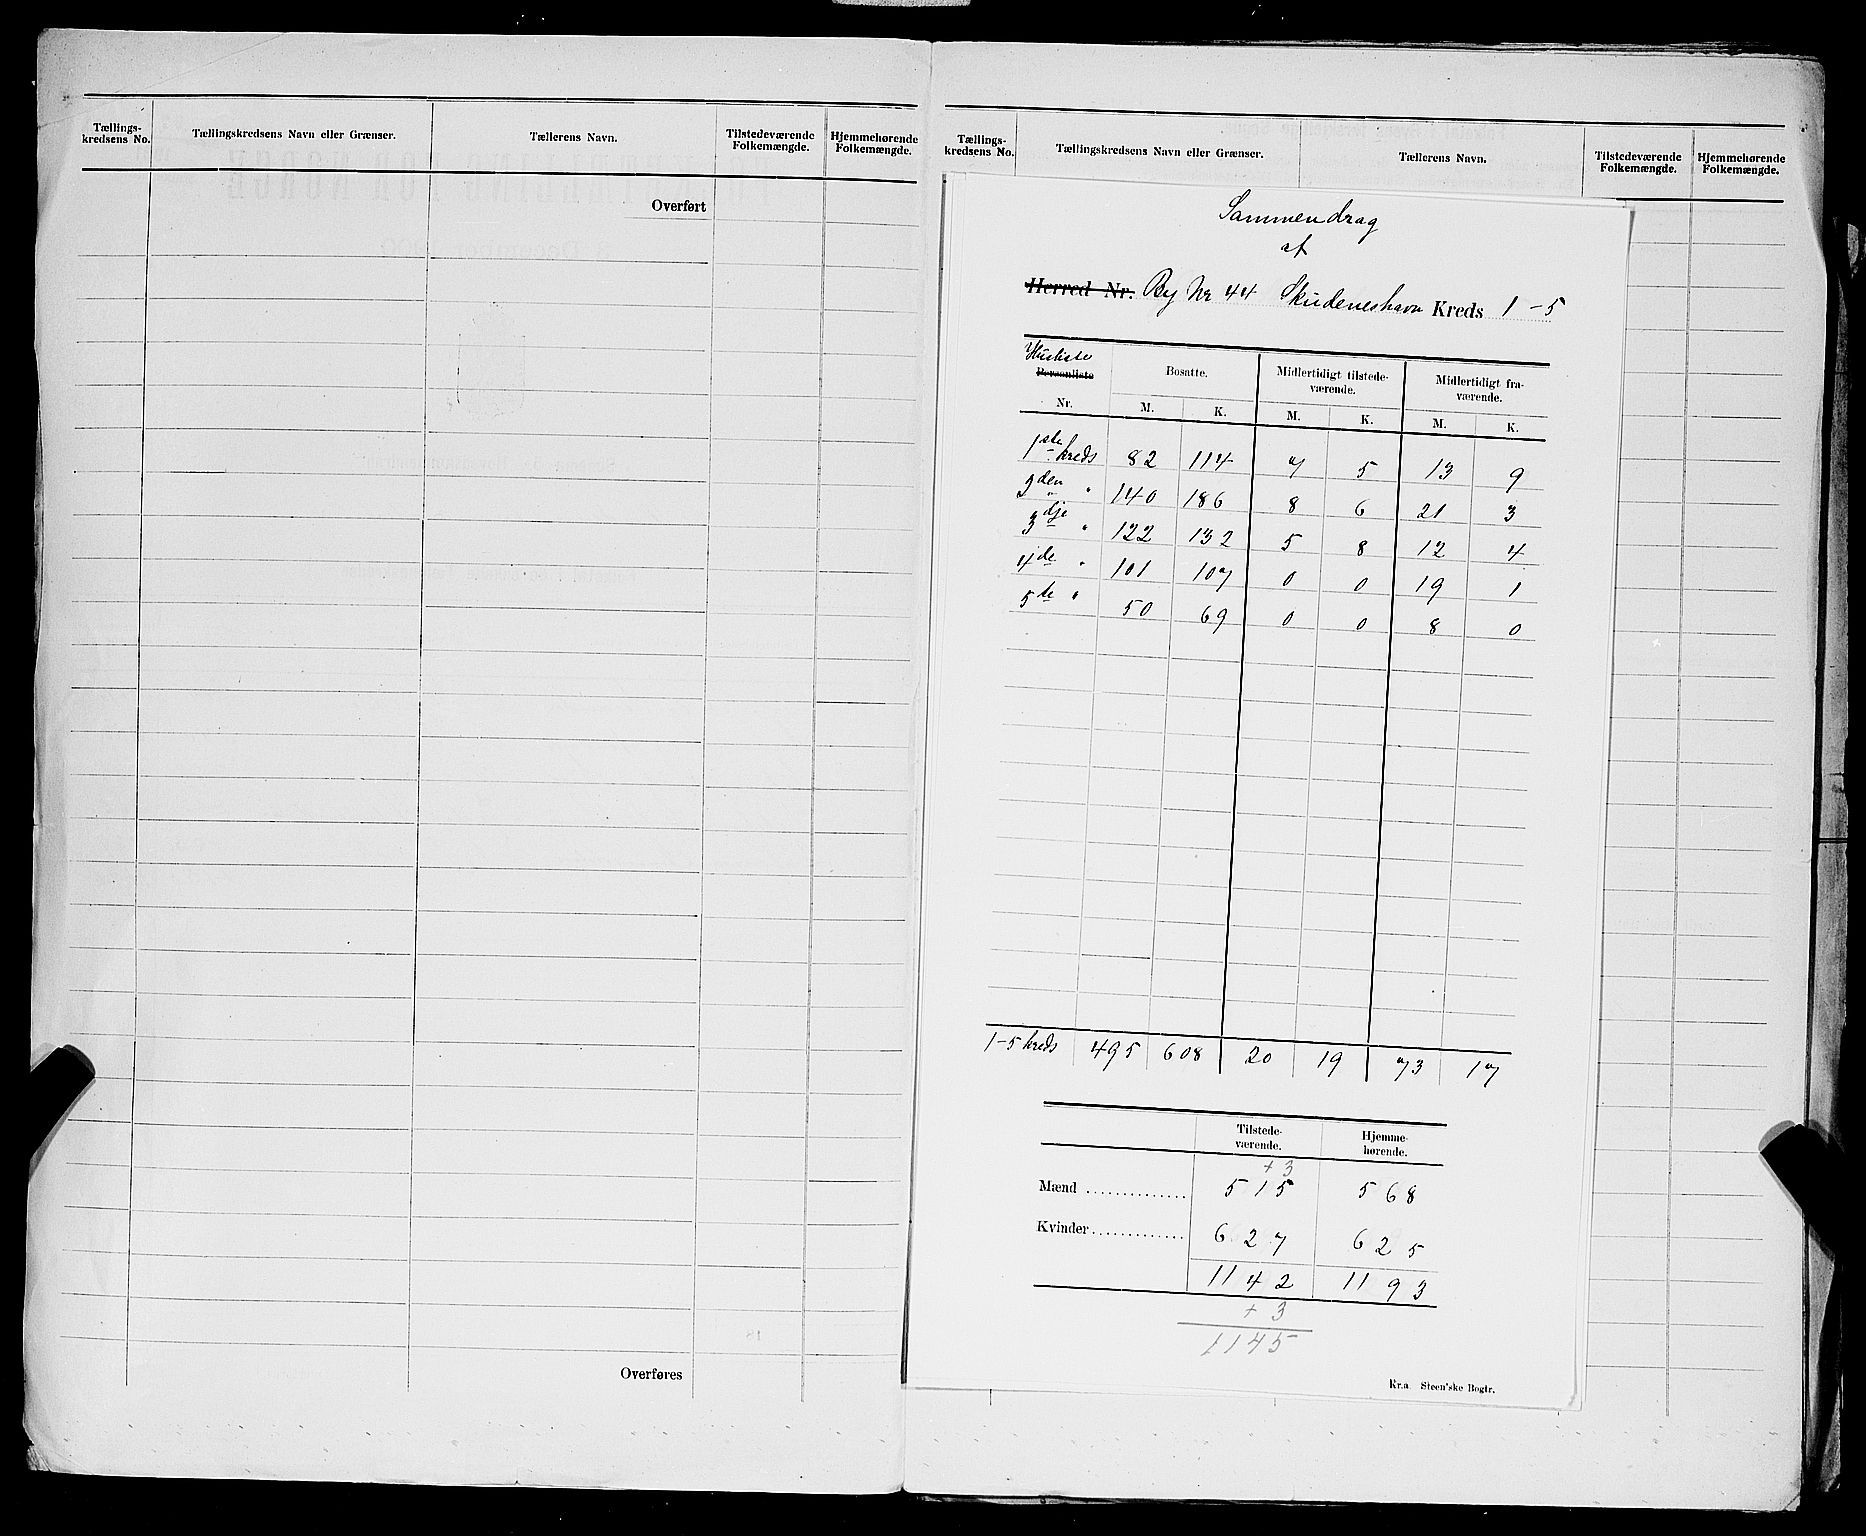 Tællings-kredsens No. Tællingskredsens Navn eller Grænser. Tællerens Navn. Tilstedeværende Folkemængde. Hjemmehørende Folkemængde.
Overført
Overføres
Tællings-kredsens No. Tællingskredsens Navn eller Grænser. Tællerens Navn. Tilstedeværende Folkemængde. Hjemmehørende Folkemængde.
Sammendrag
af
Herred Nr. By Nr 44 Skudeneshavn Kreds 1-5
Husliste
Personliste Nr. Bosatte. Midlertidigt tilstede-værende. Midlertidigt fra-værende.
M. K. M. K. M. K.
1ste kreds 82 114 7 5 13 9
2den " 140 186 8 6 21 3
3dje " 122 132 5 8 12 4
4de " 101 107 0 0 19 1
5te " 50 69 0 0 8 0
1-5 kreds 495 608 20 19 73 17
Tilstede-værende. Hjemme-hørende.
+ 3
Mænd .............. 515 568
Kvinder............. 627 625
1142 1193
+ 3
1145
Kr.a. Steen'ske Bogtr.